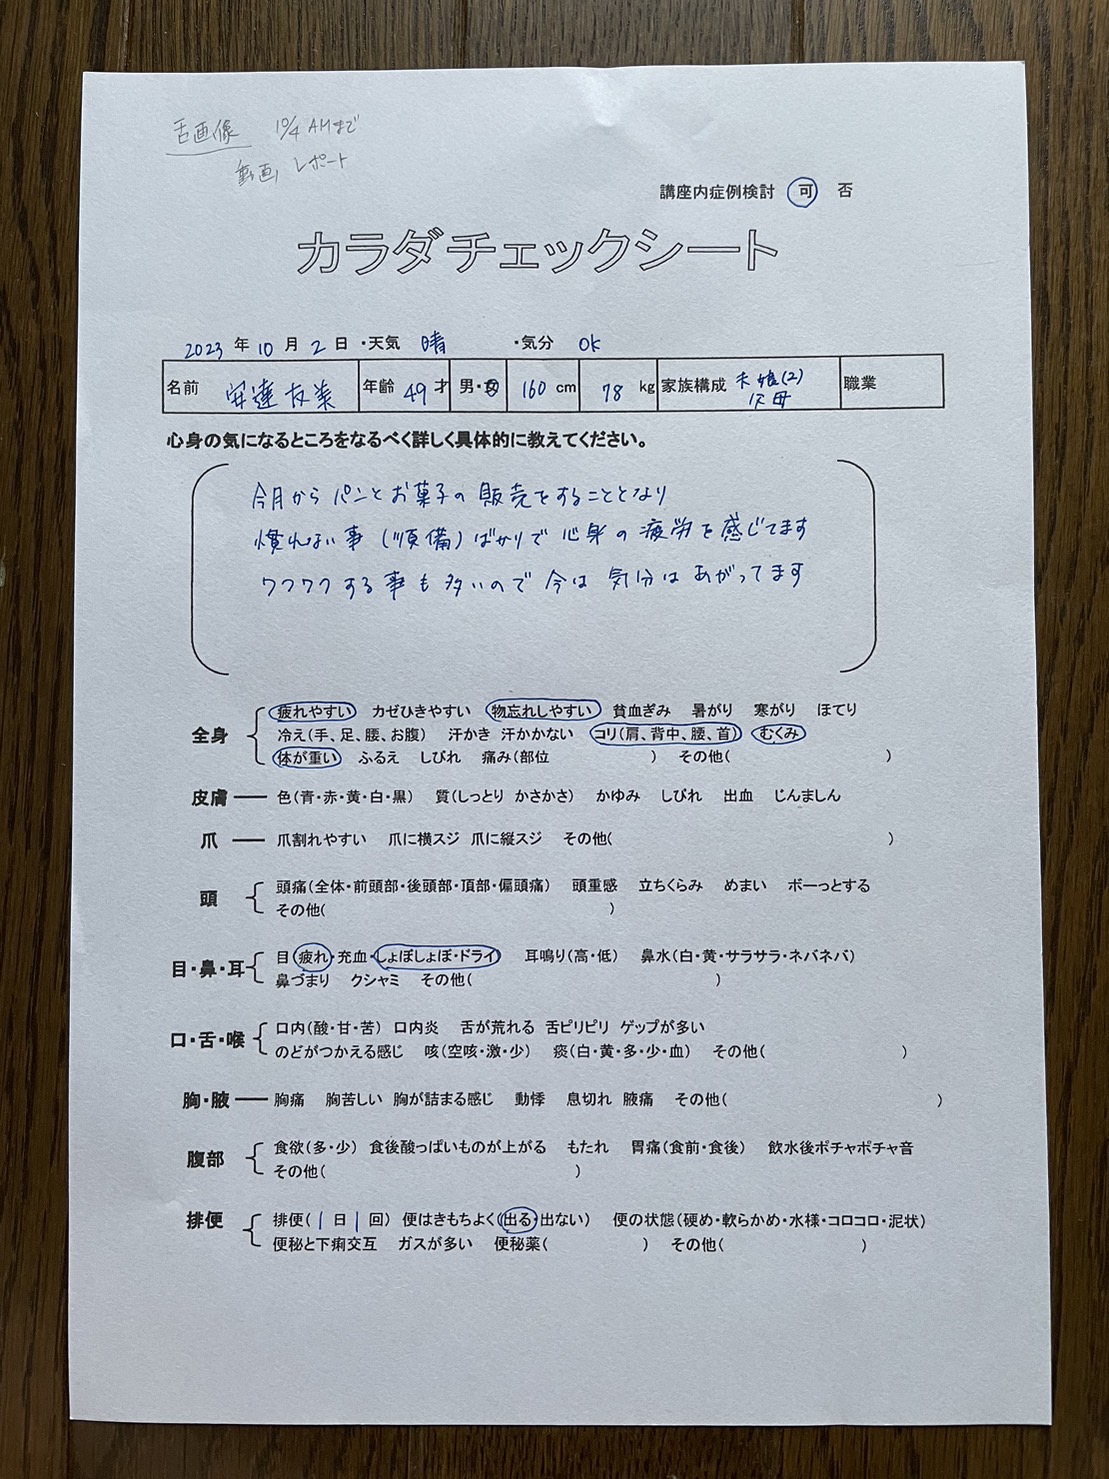 舌画像 10/4 AMまで
動画 レポート
講座内症例検討 可 否
カラダチェックシート
2023 年 10 月 2 日 ・天気 晴 ・気分 OK
名前 安達友美 年齢 49 才 男・女 160 cm 78 kg 家族構成 夫 娘(2) 父母 職業
心身の気になるところをなるべく詳しく具体的に教えてください。
今月から パンとお菓子の 販売をすることとなり
慣れない事(準備)ばかりで 心身の 疲労を感じてます
ワクワクする事も多いので今は 気分は あがってます
全身 疲れやすい カゼひきやすい 物忘れしやすい 貧血ぎみ 暑がり 寒がり ほてり
冷え(手、足、腰、お腹) 汗かき 汗かかない コリ(肩、背中、腰、首) むくみ
体が重い ふるえ しびれ 痛み(部位 ) その他( )
皮膚 ― 色(青・赤・黄・白・黒) 質(しっとり かさかさ) かゆみ しびれ 出血 じんましん
爪 ― 爪割れやすい 爪に横スジ 爪に縦スジ その他( )
頭 頭痛(全体・前頭部・後頭部・頂部・偏頭痛) 頭重感 立ちくらみ めまい ボーっとする
その他( )
目・鼻・耳 目 疲れ・充血・しょぼしょぼ・ドライ) 耳鳴り(高・低) 鼻水(白・黄・サラサラ・ネバネバ)
鼻づまり クシャミ その他( )
口・舌・喉 口内(酸・甘・苦) 口内炎 舌が荒れる 舌ピリピリ ゲップが多い
のどがつかえる感じ 咳(空咳・激・少) 痰(白・黄・多・少・血) その他( )
胸・腋 ― 胸痛 胸苦しい 胸が詰まる感じ 動悸 息切れ 腋痛 その他( )
腹部 食欲(多・少) 食後酸っぱいものが上がる もたれ 胃痛(食前・食後) 飲水後ポチャポチャ音
その他( )
排便 排便( 1 日 1 回) 便はきもちよく(出る・出ない) 便の状態(硬め・軟らかめ・水様・コロコロ・泥状)
便秘と下痢交互 ガスが多い 便秘薬( ) その他( )